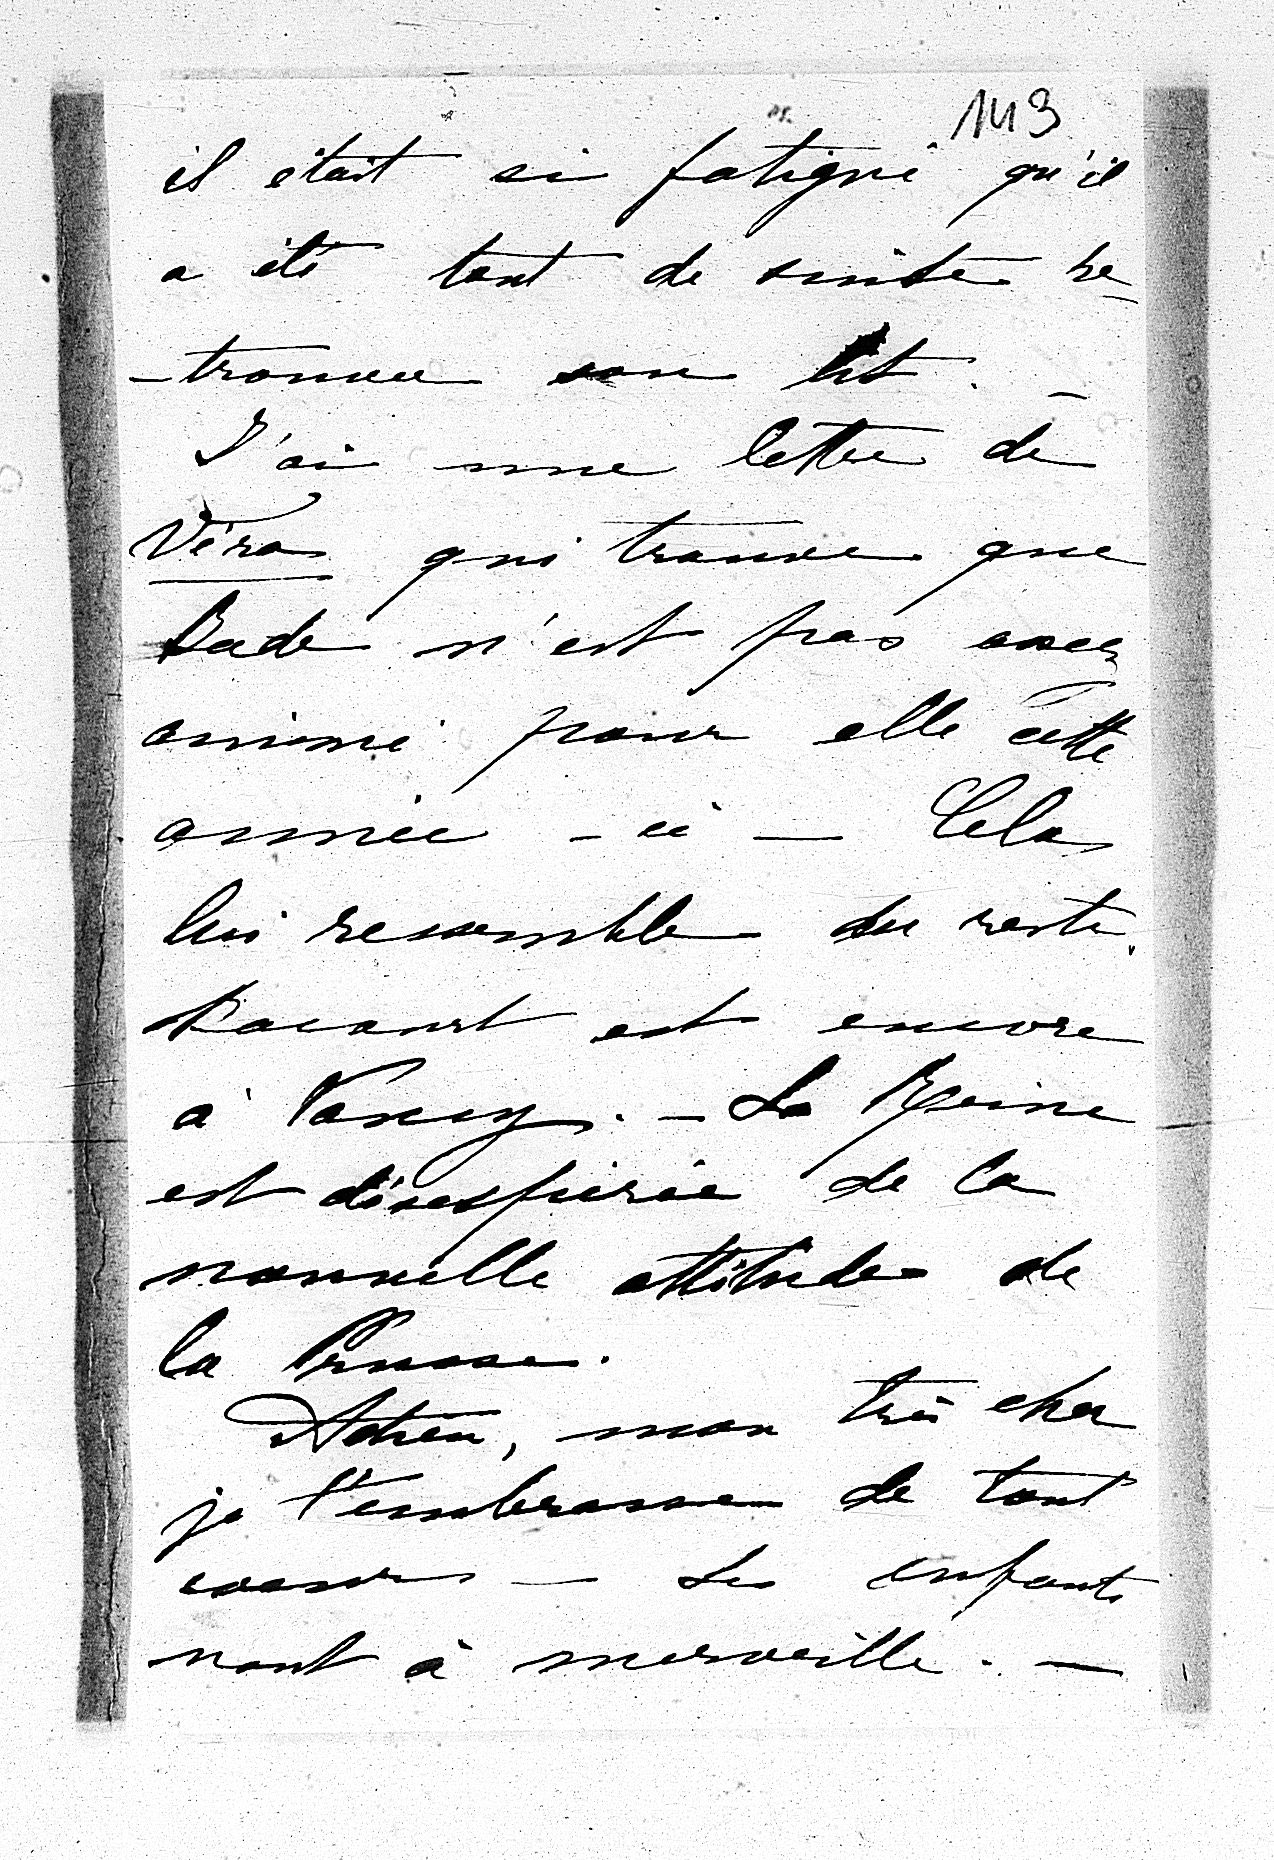 143
il était si fatigué qu'il
a été tout de suite re-
-trouver son lit. —
J'ai une lettre de
Véra qui trouve que
Bade n'est pas assez
animé pour elle cette
année-ci — Cela
lui ressemble du reste.
est encore
à Nancy. — La Reine
est désespérée de la
nouvelle attitude de
la Prusse.
Adieu, mon très cher
je t'embrasse de tout
coeur — Les enfants
vont à merveille. —